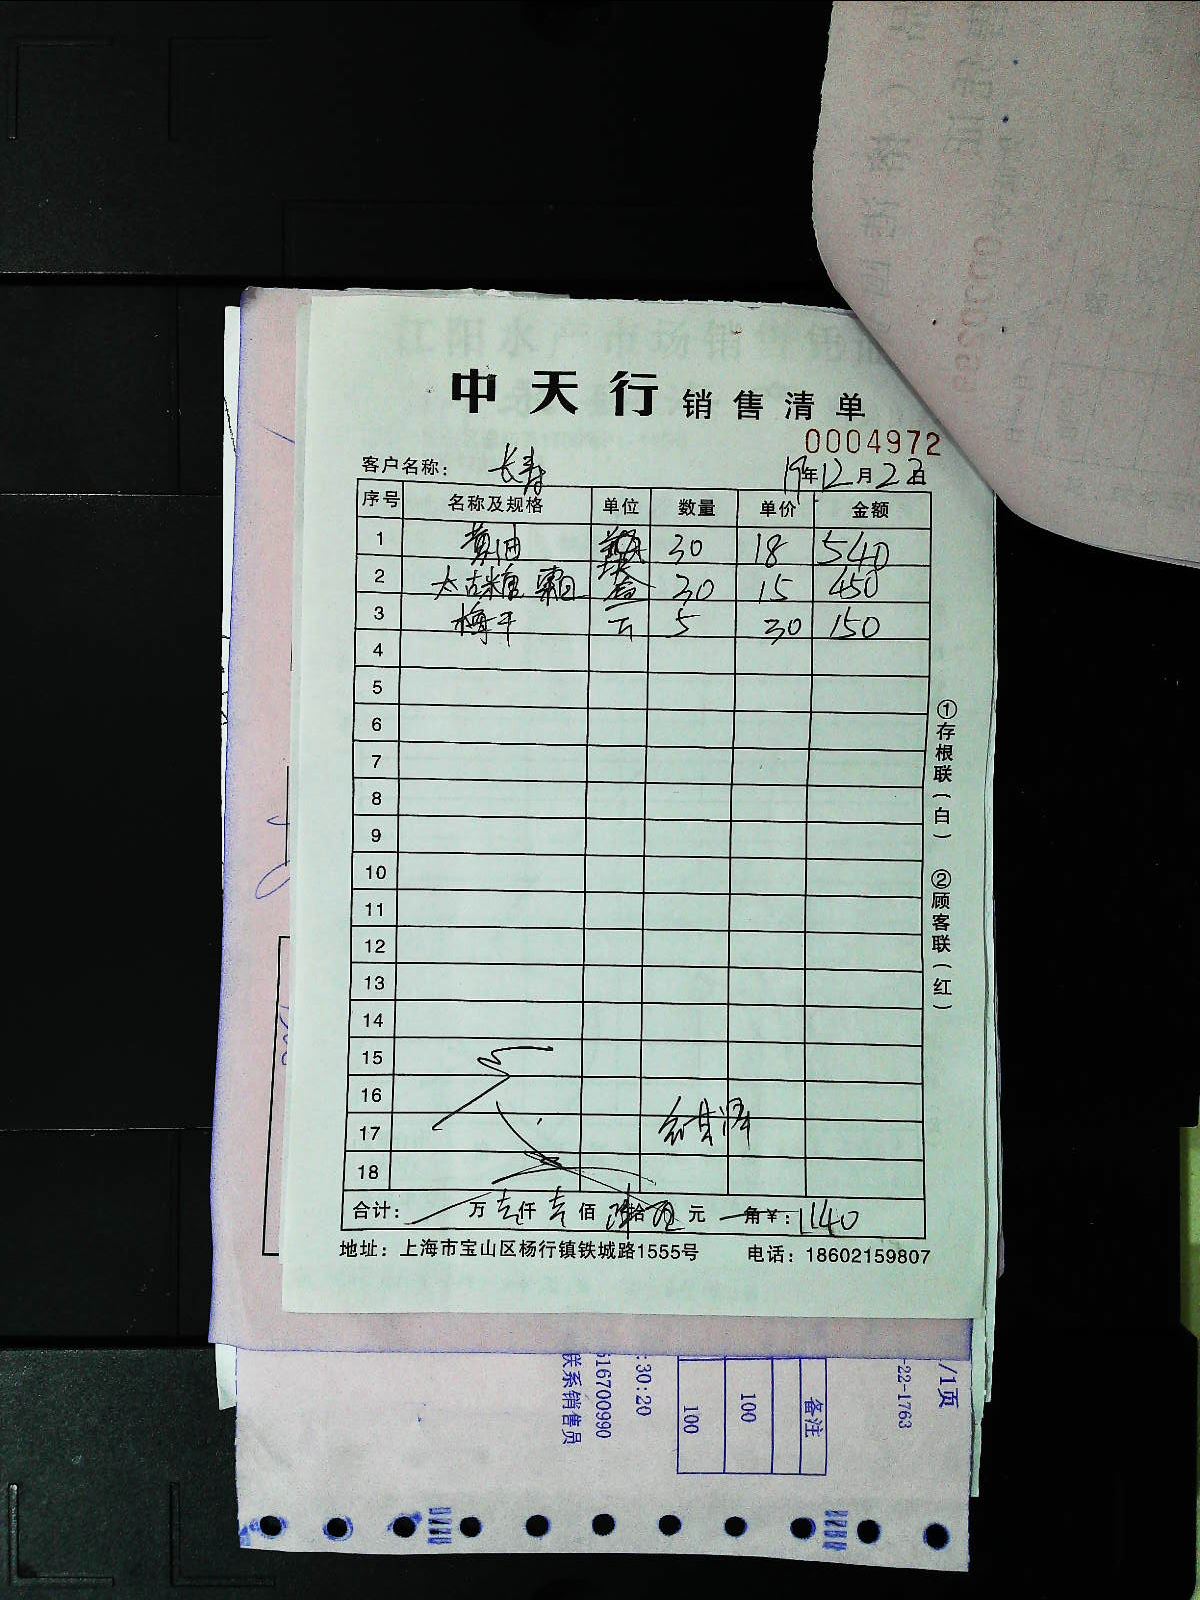 中天行 销售清单
0004972
客户名称: 长寿 19年12月23日
序号 名称及规格 单位 数量 单价 金额
1 黄油 30 18 540
2 太古糖霜 盒 30 15 450
3 梅干 5 30 150
4
5
6
7
8
9
10
11
12
13
14
15
16
17
18
合计: 万 壹仟 壹佰 拾 元 角 ¥: 1140
地址: 上海市宝山区杨行镇铁城路1555号 电话: 18602159807
①存根联(白) ②顾客联(红)
/1页
-22-1763
备注
100
100
:30:20
516700990
联系销售员